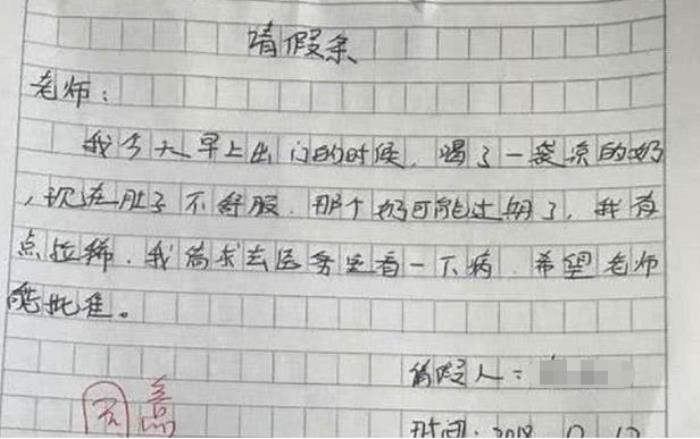 请假条
老师：
我今天早上出门的时候，喝了一袋凉的奶
，现在肚子不舒服，那个奶可能过期了，我有
点拉稀，我请求去医务室看一下病，希望老师
能批准。
请假人：
时间：2018